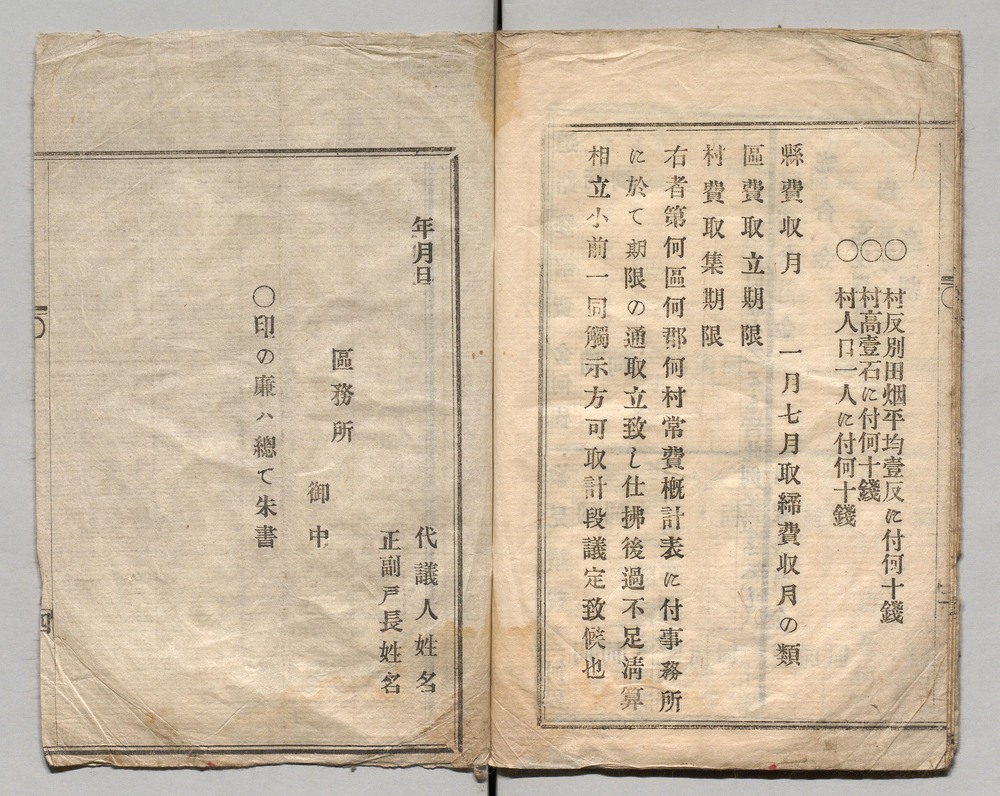 〇村反別田烟平均壹反に付何十錢
〇村高壹石に付何十錢
〇村人口一人に付何十錢
縣費収月 一月七月取締費収月の類
區費取立期限
村費取集期限
右者第何區何郡何村常費概計表に付事務所
に於て期限の通取立致し仕拂後過不足淸算
相立小前一同觸示方可取計段議定致候也
年月日
代議人姓名
正副戸長姓名
區務所
御中
〇印の廉ハ總て朱書
四